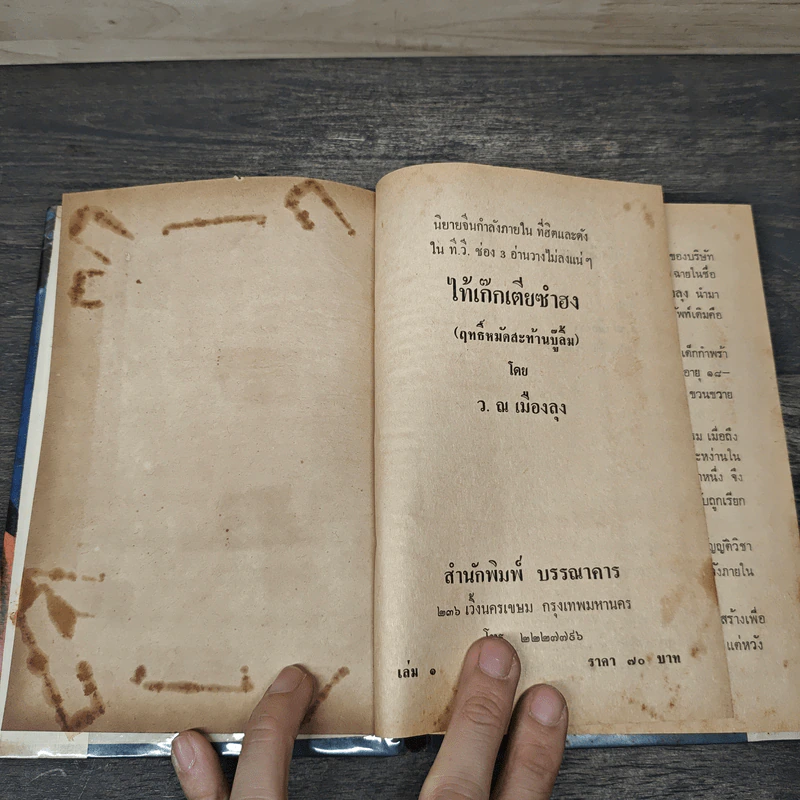 นิยายจีนกำลังภายใน ที่ฮิตและดัง
ใน ที.วี. ช่อง 3 อ่านวางไม่ลงแน่ๆ
ไท้เก๊กเตียซำฮง
(ฤทธิ์หมัดสะท้านบู๊ลิ้ม)
โดย
ว. ณ เมืองลุง
สำนักพิมพ์ บรรณาคาร
๒๓๖ เวิ้งนครเขษม กรุงเทพมหานคร
โทร. ๒๒๒๗๗๙๖
เล่ม ๑
ราคา ๗๐ บาท
ของบริษัท
ฉายในชื่อ
ลุง นำมา
ศัพท์เดิมคือ
เด็กกำพร้า
อายุ ๑๘–
ขวนขวาย
เมื่อถึง
หง่านใน
หนึ่ง จึง
ถูกเรียก
บัญญัติวิชา
ภายใน
สร้างเพื่อ
แต่หวัง